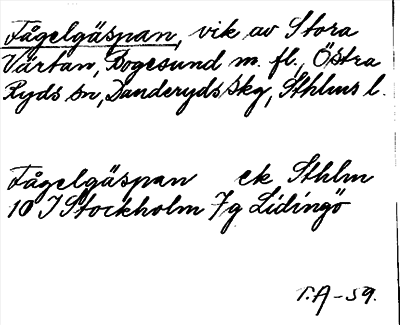 Fågelgäspan, vik av Stora
Värtan, Bogesund m. fl., Östra
Ryds sn, Danderyds skg, Sthlms l.
Fågelgäspan ek Sthlm
10 I Stockholm 7g Lidingö
T.A-59.